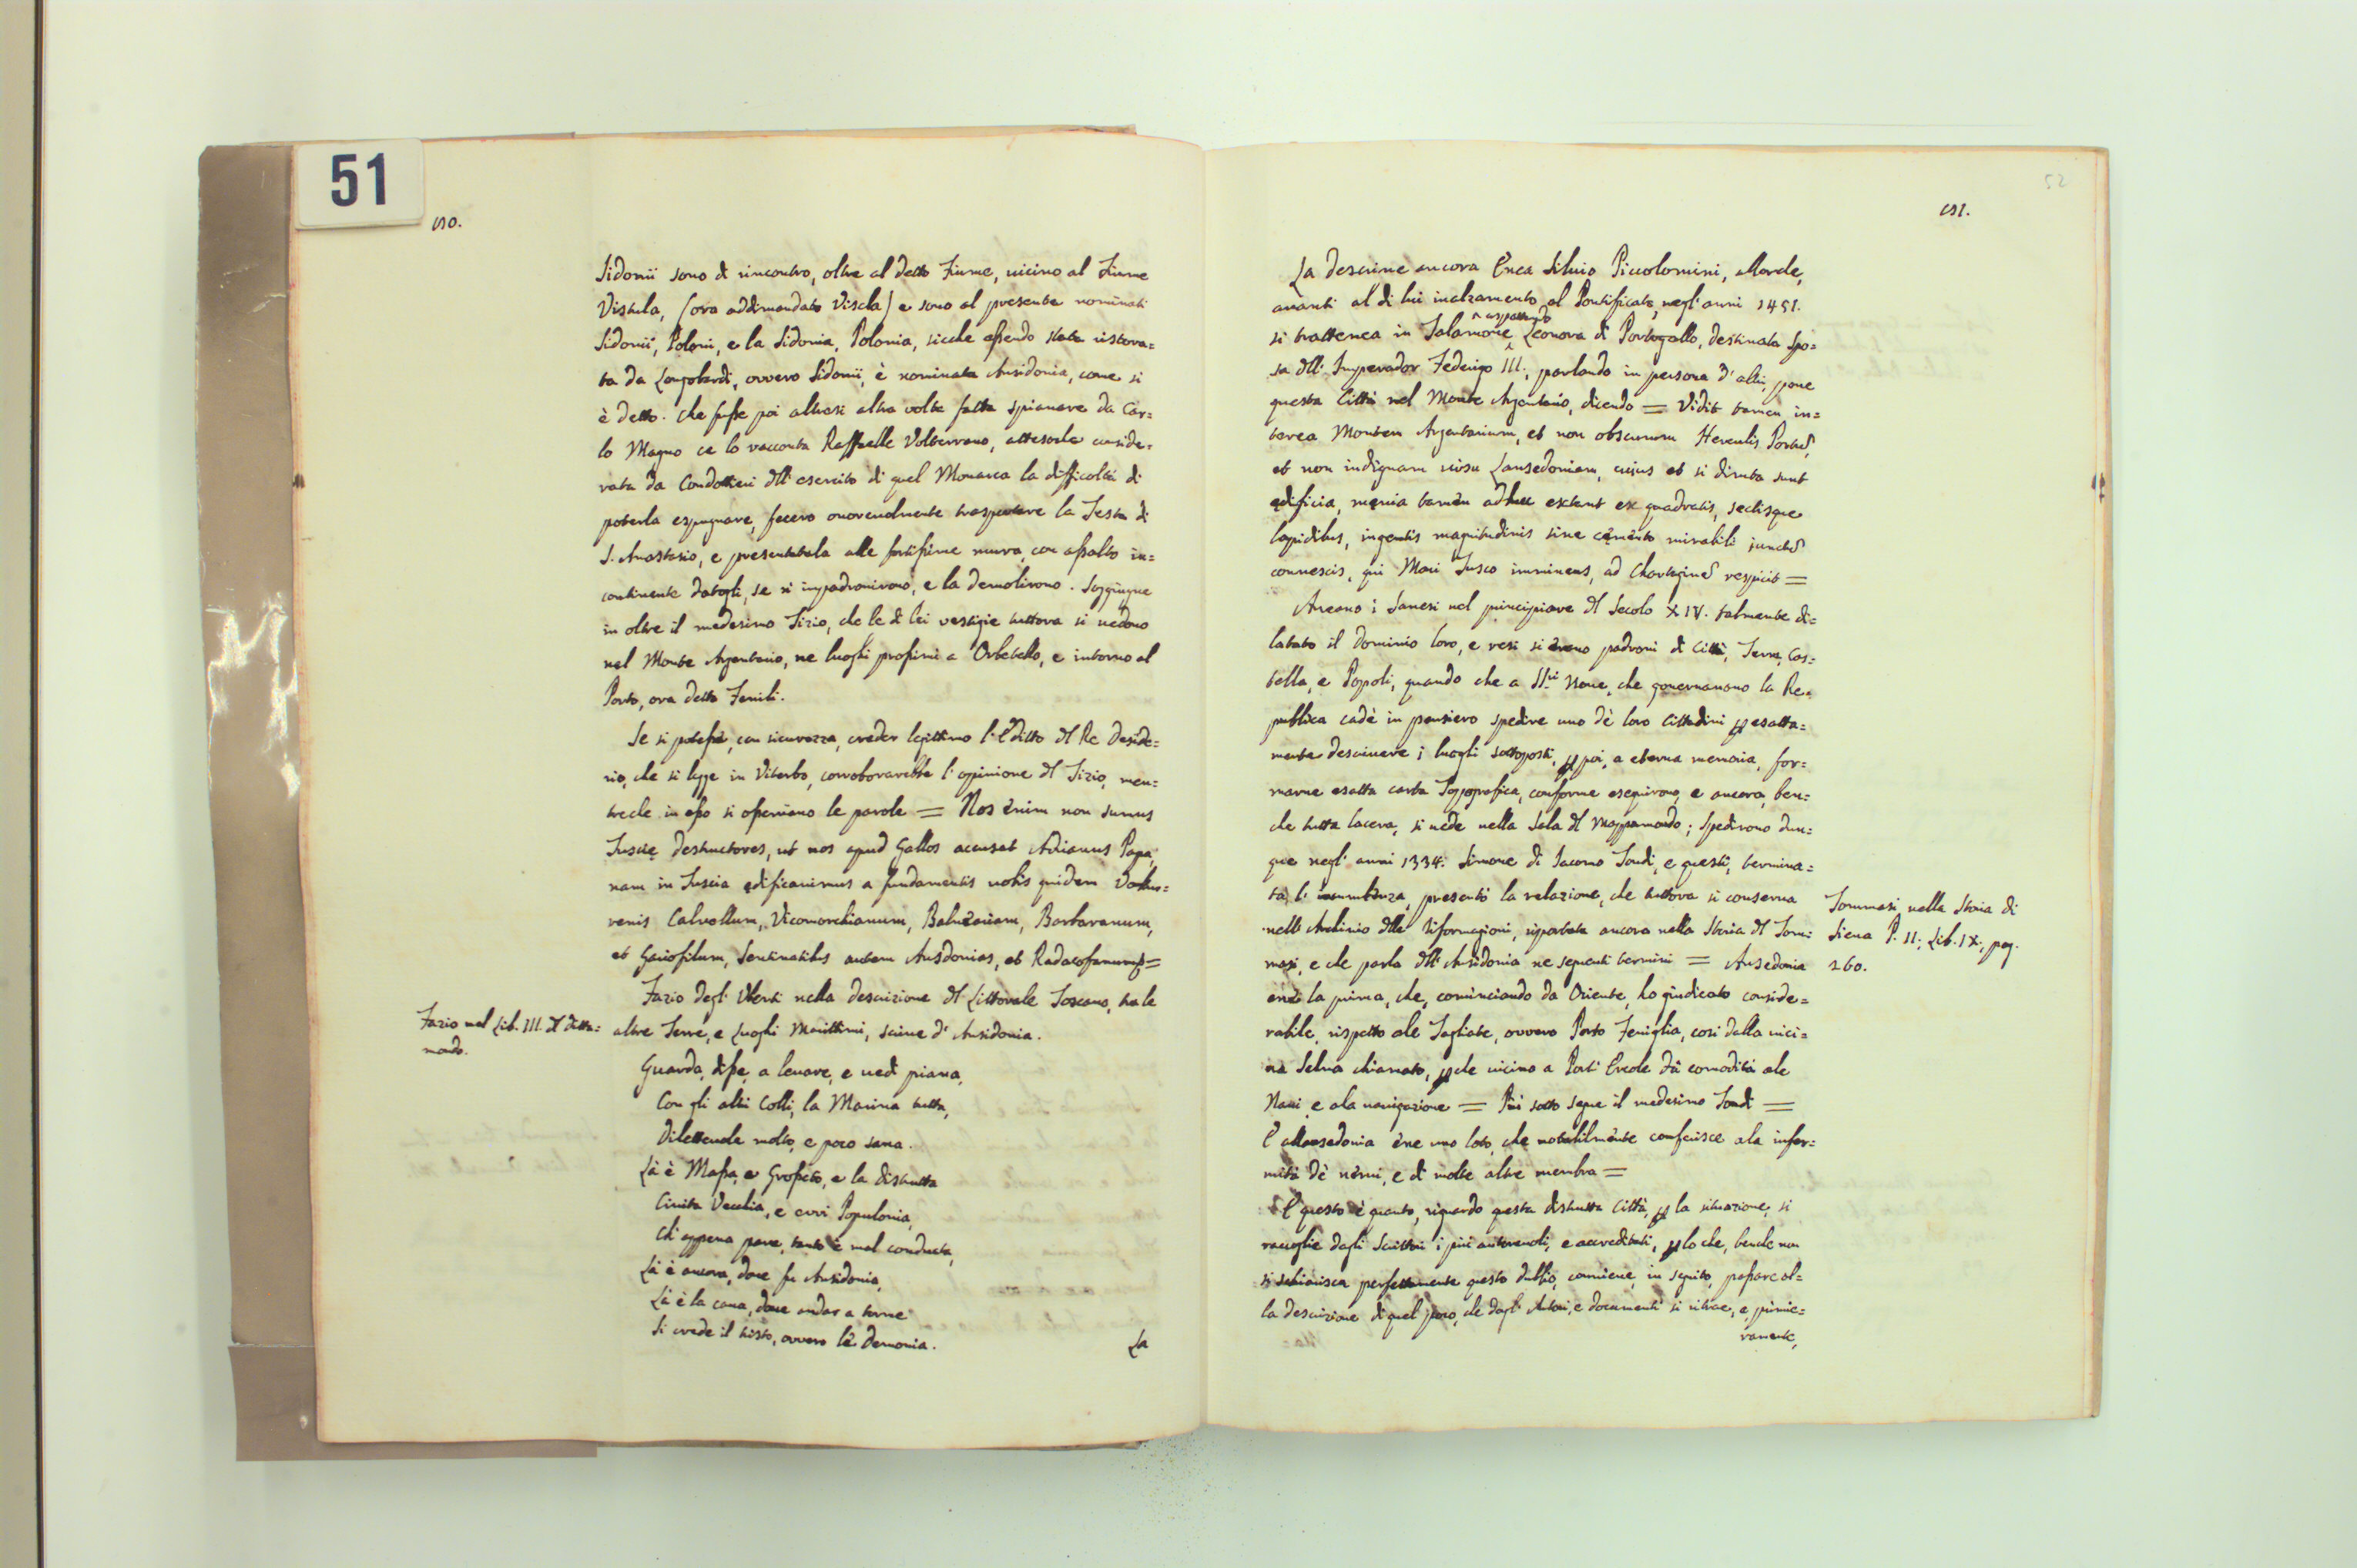 51
Sidonii sono di rincontro, oltre al detto Fiume, uicino al Fiume
Vistula, (ora addimandato Viscla) e sono al presente nominati
Sidonii, Poloni, e la Sidonia, Polonia, sicche essendo stata ristora=
ta da Longobardi, ovvero Sidonii, è nominata Ansidonia, come si
è detto. Che fusse poi altresi altra volta fatta spianare da Car=
lo Magno ce lo racconta Raffaelle Volterrano, attesoche conside=
rata da Condottieri dell' esercito di quel Monarca la difficoltà di
poterla espugnare, fecero onorevolmente trasportare la Testa di
S. Anastasio, e presentatala alle fortissime mura, con assalto in=
continente datogli, se ne impadronirono, e la demolirono. Soggiugne
in oltre il medesimo Tizio, che le di lei vestigie tuttora si uedono
nel Monte Argentario, ne luoghi prossimi a Orbetello, e intorno al
Porto, ora detto Fenili.
Se si potesse, con sicurezza, creder legittimo l'Editto del Re Deside=
rio, che si legge in Viterbo, corroborarebbe l'oppinione del Tizio, men=
treche in esso si osservano le parole = Nos enim non sumus
Tuscie destructores, ut nos apud Gallos accusat Adrianus Papa,
nam in Tuscia edificauimus a fundamentis nobis quidem
renis Calvellum, Vicomorchianum, Balneariam, Barbaranum,
et Gariofilum, Sentinatibus autem Ansdonias, et Radacofanum =
Fazio degl' Uberti nella descrizione del Littorale Toscano, tra le
altre Terre, e Luoghi Marittimi, scriue d' Ansidonia.
Fazio nel Lib. III. del Ditta=
mondo.
Guarda, disse, a leuare, e uedi piana,
Con gli altri Colli, la Marina tutta,
Dilettevole molto, e poco sana.
Là è Massa, e Grosseto, e la distrutta
Ciuita Vecchia, e evvi Populonia,
Ch' appena pare, tanto è mal condutta,
Là è ancora, doue fu Ansidonia,
Là è la caua, doue andar a torme
Si crede il tristo, ovvero le Demonia.
La
52
La descriue ancora Enea Siluio Piccolomini, allorche,
auanti al di lui inalzamento al Pontificato, negl' anni 1451.
aspettando
si trattenea in Talamone, Leonora di Portogallo, destinata Spo=
sa dell' Imperador Federigo III., parlando in persona d' altri, pone
questa Città nel Monte Argentario, dicendo = Vidit tamen in=
terea Montem Argentarium, et non obscurum Herculis Portum,
et non indignam uisu Lansedoniam, cuius et si diruta sunt
edificia, menia tamen adhuc extant ex quadratis, sectisque
lapidibus, ingentis magnitudinis sine cemento mirabili junctura
connexis, qui Mari Tusco imminens, ad Chartaginem respicit =
Aueano i Sanesi nel principiare del Secolo XIV. talmente di=
latato il Dominio loro, e resi si erano padroni di Città, Terre, Cas=
tella, e Popoli, quando che a SSri Noue, che gouernauano la Re=
publica cadè in pensiero spedire uno de loro Cittadini p esatta=
mente descriuere i luogli sottoposti, p poi, a eterna memoria, for=
marne esatta carta Topografica, conforme eseguirono, e ancora, ben=
che tutta lacera, si uede nella Sala del Mappamondo; Spedirono dun=
que negl' anni 1334. Simone di Iacomo Tondi, e questi, termina=
ta l' incumbenza, presentò la relazione, che tuttora si conserua
nell' Archiuio delle Riformagioni, riportata ancora nella Storia del Tom=
masi, e che parla dell' Ansidonia ne seguenti termini = Ansedonia
Tommasi nella Storia di
Siena P. II; Lib. IX, pag.
260.
ene la prima, che, cominciando da Oriente, ho giudicato conside=
rabile, rispetto ale Tagliate, ovvero Porto Feniglia, cosi dalla uici=
na Selua chiamato, p che uicino a Port' Ercole dà comodità ale
Naui, e ala nauigazione = Più sotto segue il medesimo Tondi =
E Allansedonia ène uno loto, che notabilmente conferisce ala infer=
mità de nerui, e di molte altre membra =
E questo è quanto, riguardo questa distrutta Città, p la situazione, si
raccoglie dagli Scrittori i più autoreuoli, e accreditati, p lo che, benche non
si schiarisca perfettamente questo dubbio, conuiene, in seguito, passare al=
la descrizione di quel poco, che dagl' Autori, e documenti si ritrae, e primie=
ramente,